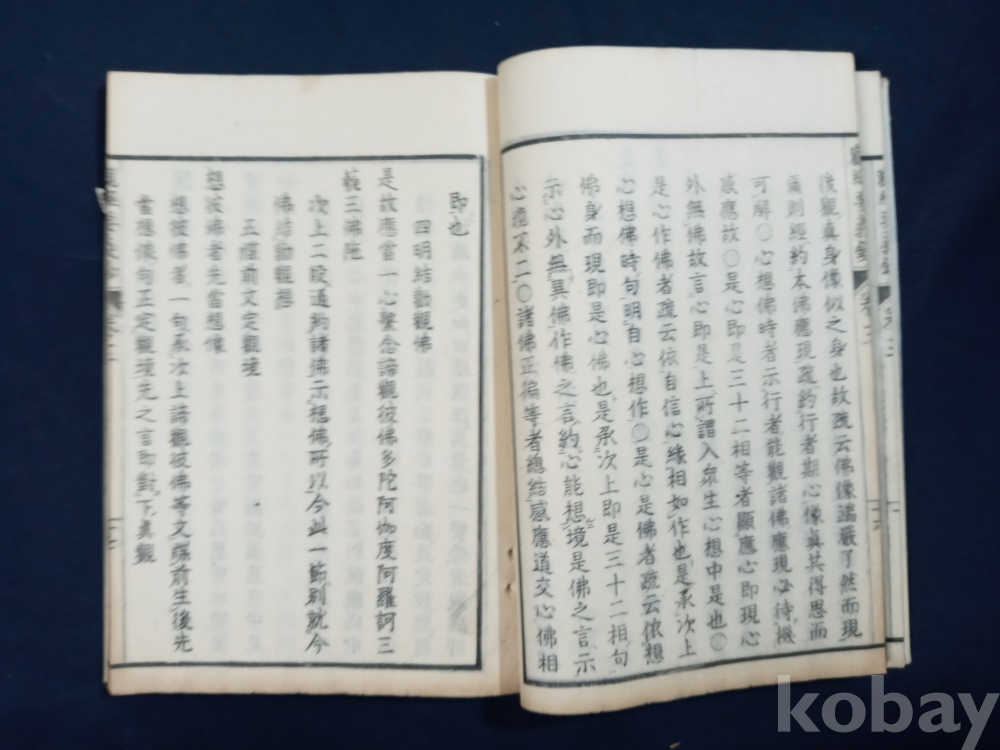 後觀真身像似之身也故疏云佛像端嚴了然而現
爾則經約本佛應現疏約行者期心像真其得思而
可解〇心想佛時者示行者能觀諸佛應現必待機
感應故〇是心即是三十二相等者顯應心即現心
外無佛故言心即是上所謂入衆生心想中是也〇
是心作佛者疏云依自信心緣相如作也是承次上
心想佛時句明自心想作〇是心是佛者疏云依想
佛身而現即是心佛也是承次上即是三十二相句
示心外無異佛作佛之言約心能想境是佛之言示
心境不二〇諸佛正徧等者總結感應道交心佛相
即也
四明結勸觀佛
是故應當一心繫念諦觀彼佛多陀阿伽度阿羅訶三
藐三佛陀
次上二段通約諸佛示想佛所以今此一節別就今
佛結勸觀想
五牒前文定觀境
想彼佛者先當想像
想彼佛者一句承次上諦觀彼佛等文牒前生後先
當想像句正定觀境先之言即對下真觀
kobay